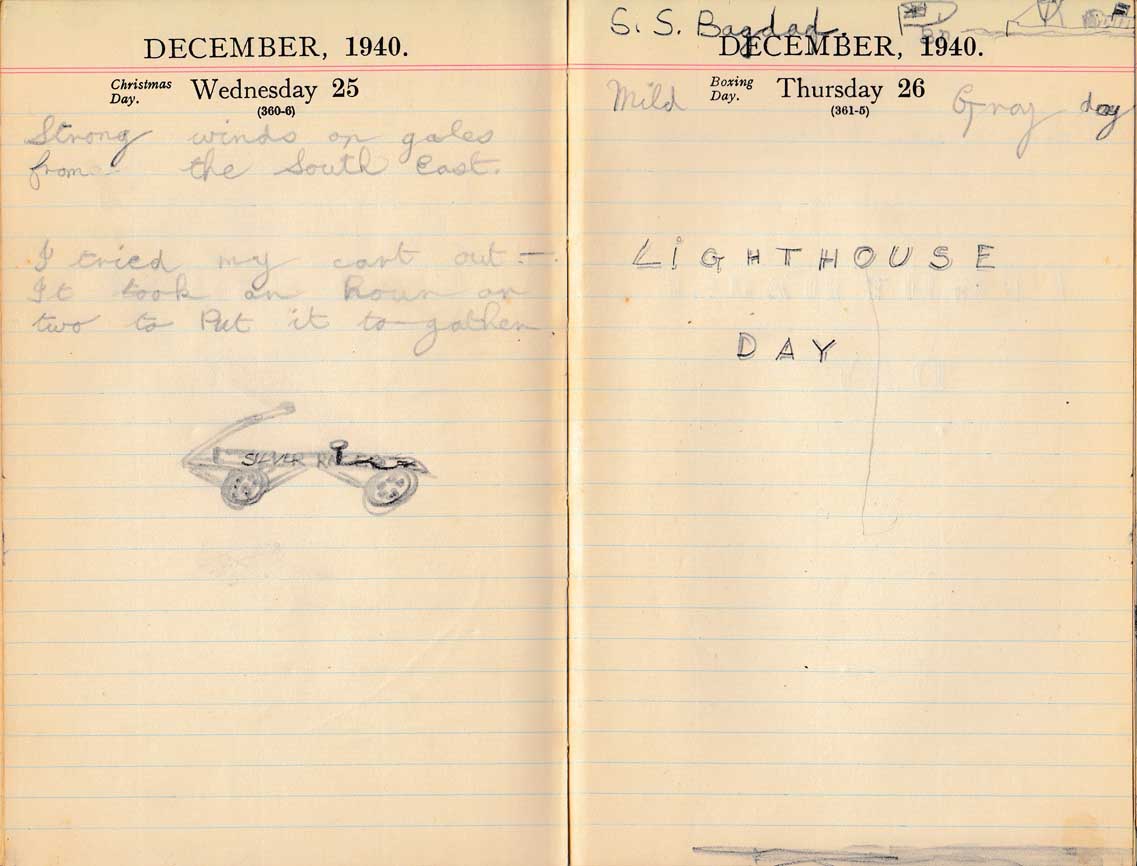 DECEMBER, 1940.
Christmas Day. Wednesday 25
(360-6)
Strong winds or gales
from the South East.
I tried my cart out —
It took an hour or
two to Put it to-gather
SILVER
S. S. Bagdad.
DECEMBER, 1940.
Mild Boxing Day. Thursday 26 Gray day
(361-5)
LIGHTHOUSE
DAY